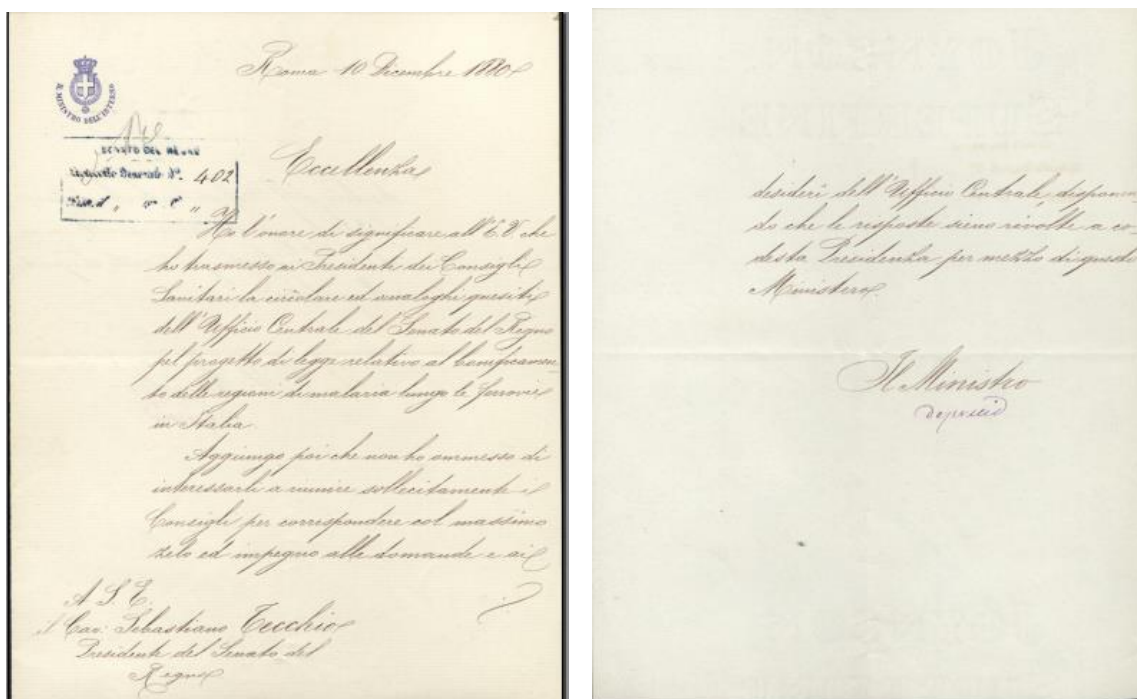 Roma 10 Dicembre 1880
IL MINISTRO DELL'INTERNO
SENATO DEL REGNO
Generale N.° 402
Eccellenza
Ho l'onore di significare all'E.V. che
ho trasmesso ai Presidenti dei Consigli
Sanitari la circolare ed analoghi quesiti
dell'Ufficio Centrale del Senato del Regno
pel progetto di legge relativo al bonificamen-
to delle regioni di malaria lungo le ferrovie
in Italia.
Aggiungo poi che non ho ommesso di
interessarli a riunire sollecitamente i
Consigli per corrispondere col massimo
zelo ed impegno alle domande e ai
A S. E.
il Cav: Sebastiano Tecchio
Presidente del Senato del
Regno
desideri dell'Ufficio Centrale, disponen-
do che le risposte sieno rivolte a co-
desta Presidenza per mezzo di questo
Ministero.
Il Ministro
Depretis